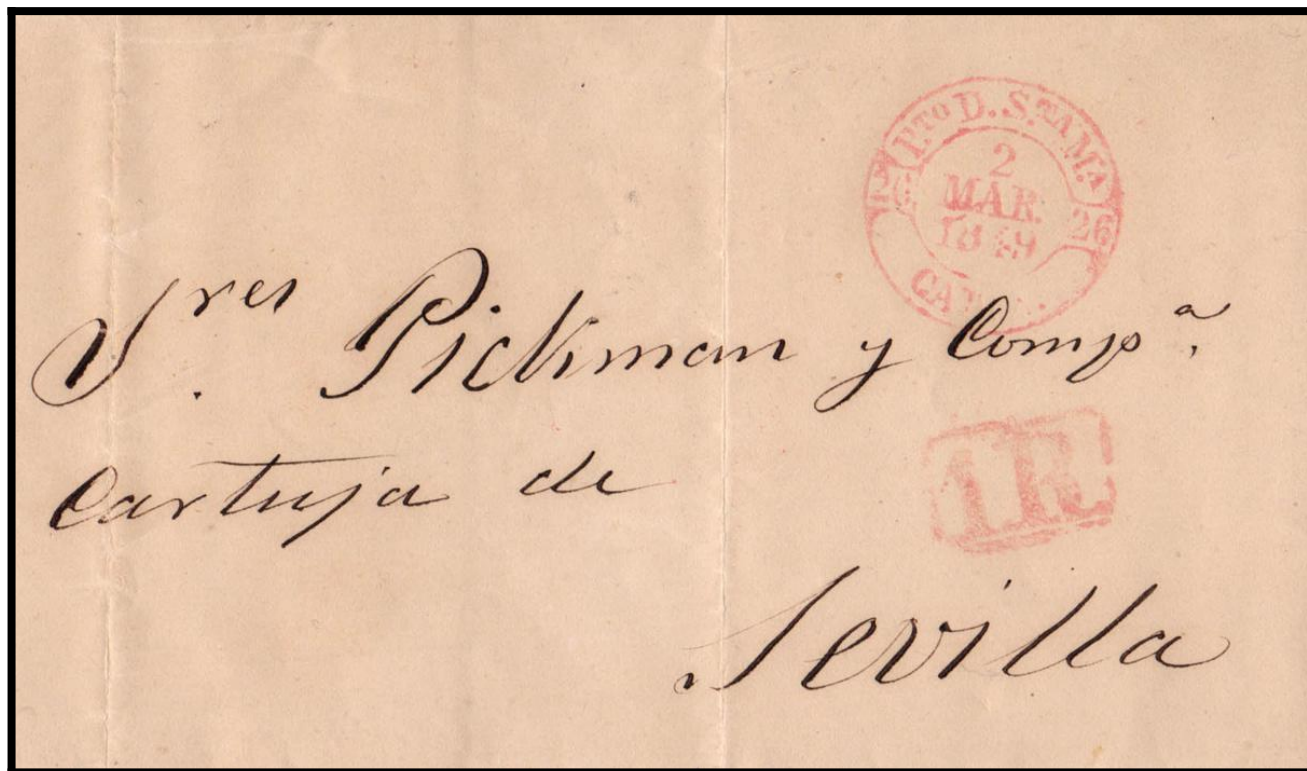 P.TO D. S.TA M.A
2
MAR.
1849
26
S.res Pickman y Comp.a
1.R.
Cartuja de
Sevilla